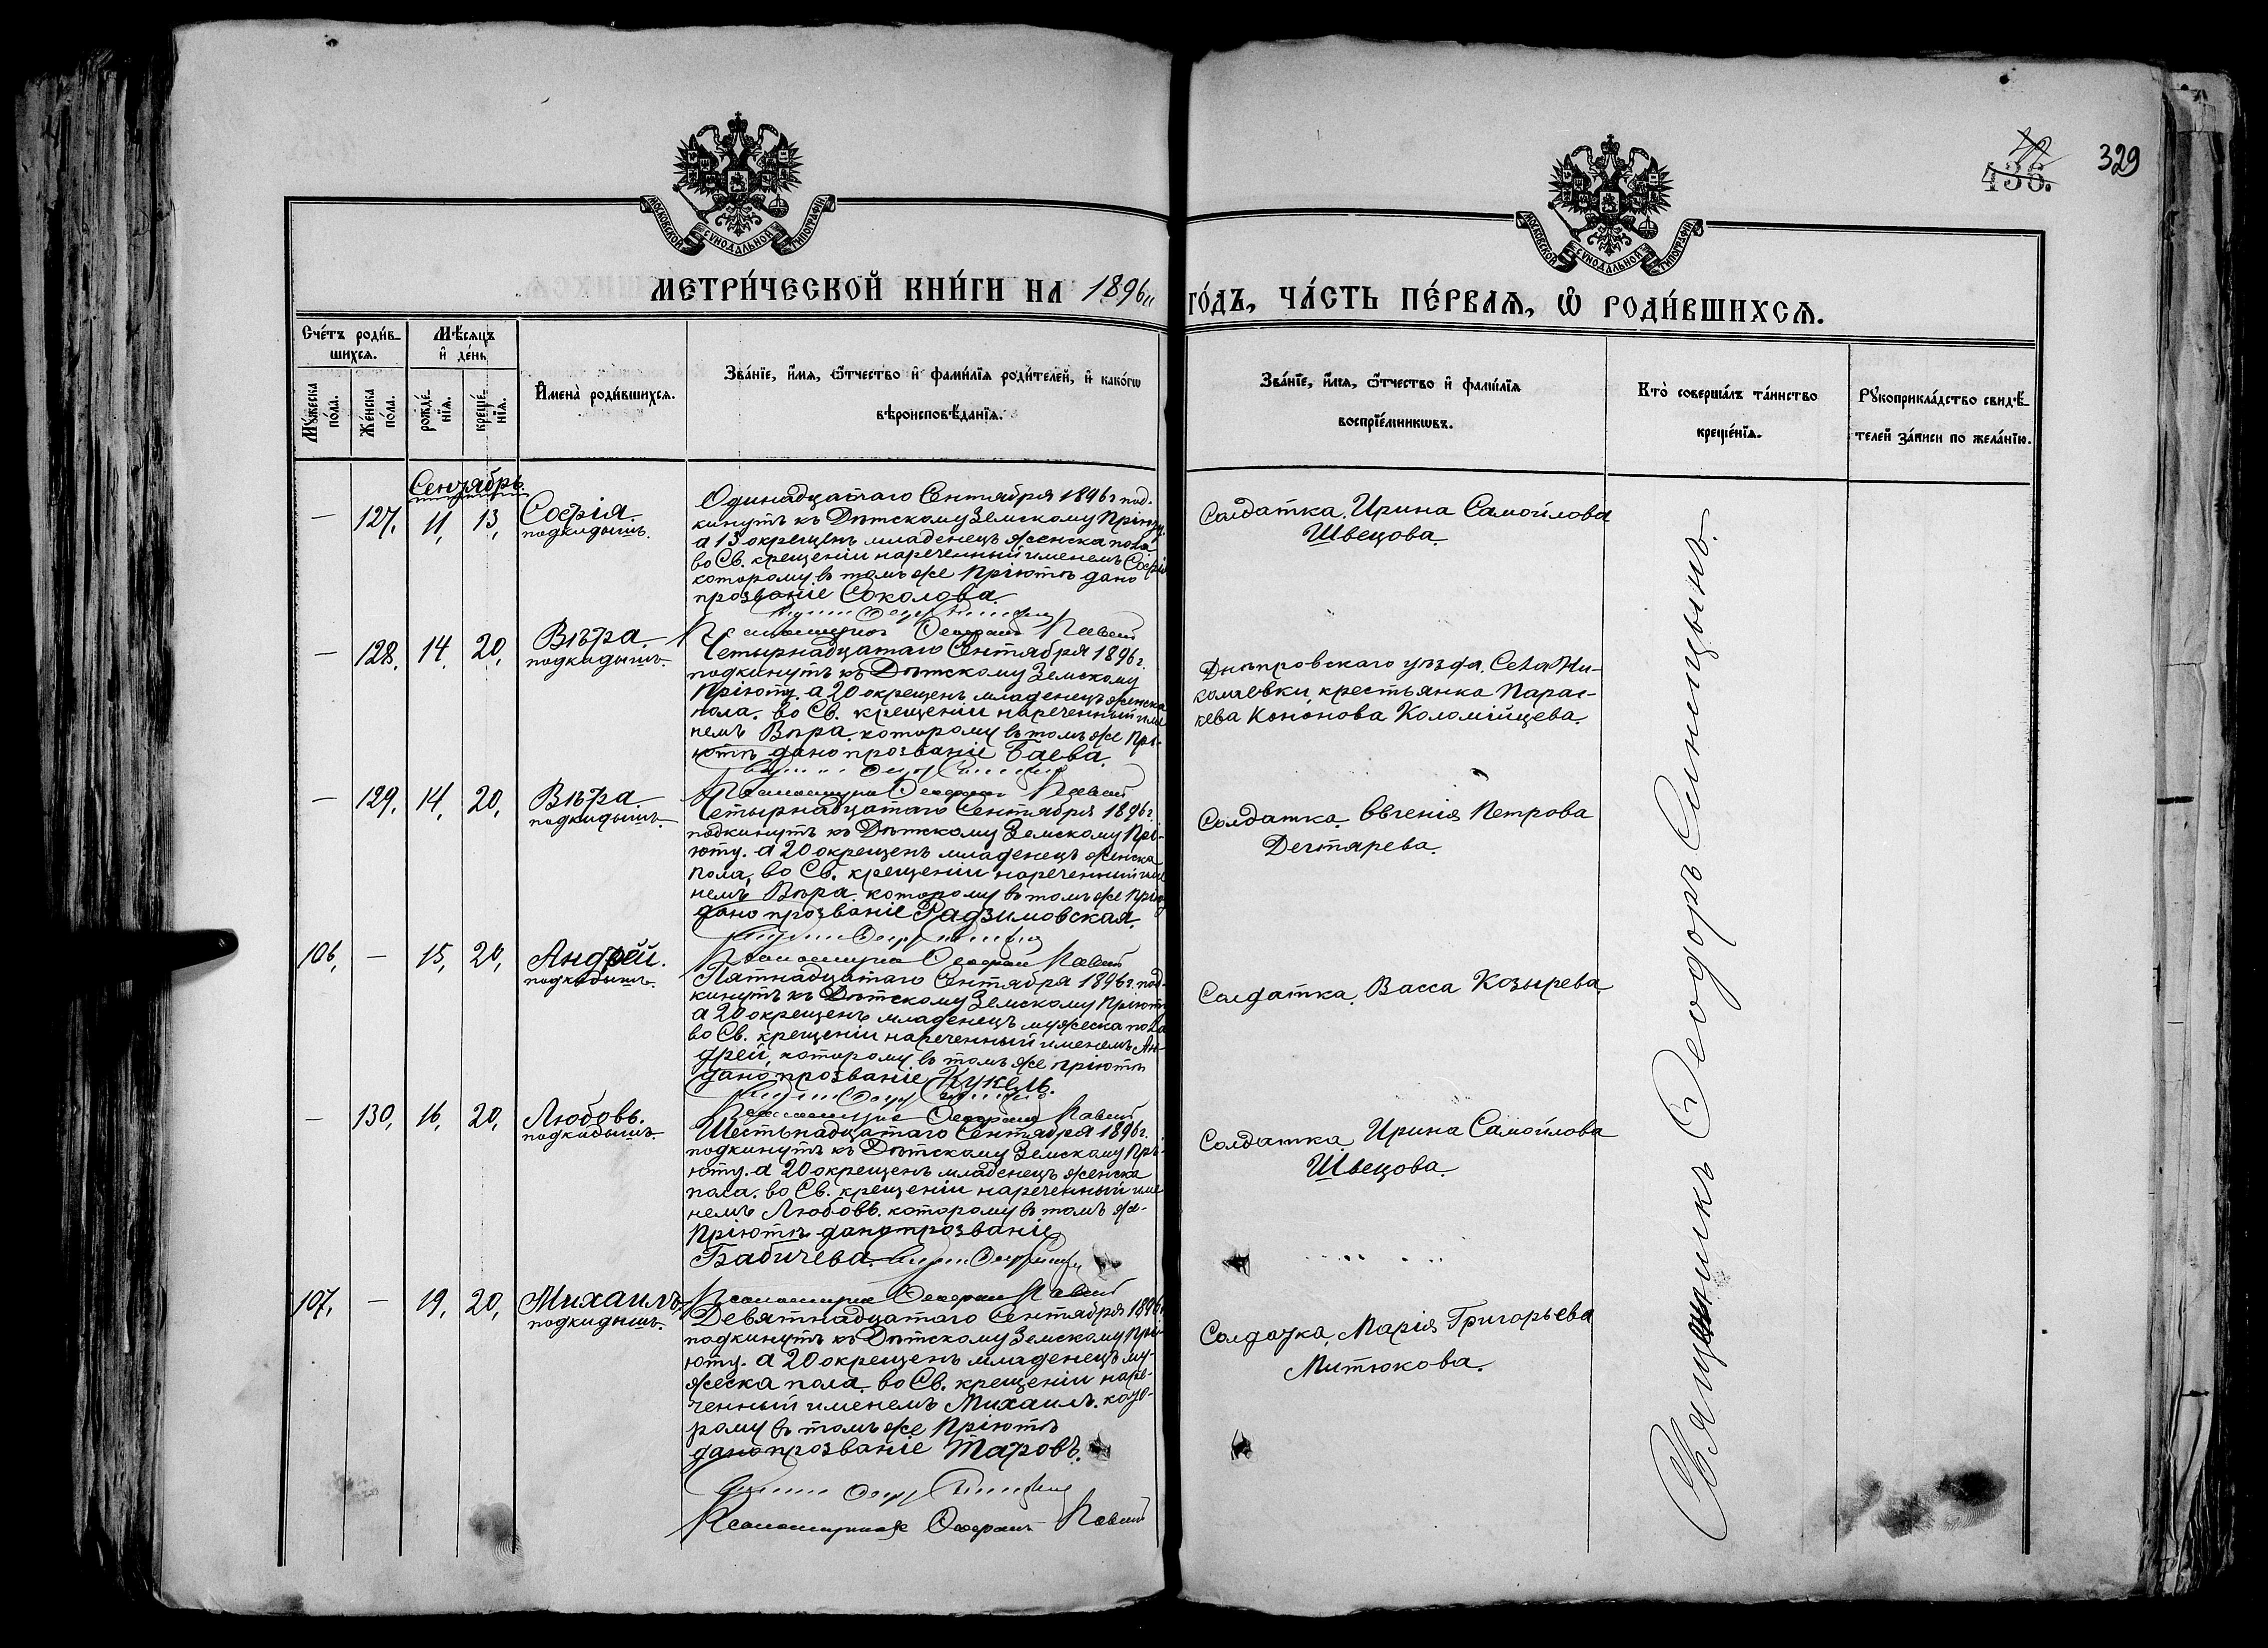 435.
329
МОСКОВСКОЙ СѴНОДАЛЬНОЙ ТИПОГРАФІИ
МОСКОВСКОЙ СѴНОДАЛЬНОЙ ТИПОГРАФІИ
МЕТРИ́ЧЕСКОЙ КНИ́ГИ НА 1896й
ГО́ДЪ, ЧА́СТЬ ПЕ́РВАЯ, Ѽ РОДИ́ВШИХСЯ.
Сче́тъ роди́в-
шихся.
Мѣ́сяцъ
и҆ де́нь
Мꙋ́жеска по́ла.
Же́нска по́ла.
рожде́нїя.
креще́нїя.
И҆мена̀ роди́вшихся.
Зва́нїе, и҆́мя, ѻ҆́тчество и҆ фами́лїя роди́телей, и҆ како́гѡ
вѣроисповѣ́данїя.
Зва́нїе, и҆́мя, ѻ҆́тчество и҆ фами́лїя
воспрїе́мникѡвъ.
Кто̀ соверша́лъ та́инство
креще́нїя.
Рꙋкоприкла́дство свидѣ́-
телей за́писи по жела́нїю.
Сентябрь.
— 127, 11, 13,
Софія.
подкидышъ.
Одинадцатаго Сентября 1896г под-
кинутъ къ Дѣтскому Земскому Пріюту.
а 13 окрещенъ младенецъ женска пола
во Св. крещеніи нареченный именемъ Софія
которому въ томъ же Пріютѣ дано
прозваніе Соколова.
Солдатка. Ирина Самойлова
Швецова.
Псаломщикъ
— 128, 14, 20,
Вѣра.
подкидышъ.
Четырнадцатаго Сентября 1896г.
подкинутъ къ Дѣтскому Земскому
Пріюту. а 20 окрещенъ младенецъ женска
пола. во Св. крещеніи нареченный име
немъ Вѣра. которому въ томъ же Прі-
ютѣ дано прозваніе Баева.
Днѣпровскаго уѣзда. Села Ни-
колаевки крестьянка Парас-
кева Кононова Коломійцева.
Псаломщикъ
— 129, 14, 20,
Вѣра.
подкидышъ.
Четырнадцатаго Сентября 1896г.
подкинутъ къ Дѣтскому Земскому Прі-
юту. а 20 окрещенъ младенецъ женска
пола, во Св. крещеніи нареченный име
немъ Вѣра. которому въ томъ же Прію
дано прозваніе Радзимовская.
Солдатка. Евгенія Петрова
Дегтярева.
Псаломщикъ
106, — 15, 20,
Андрей.
подкидышъ.
Пятнадцатаго Сентября 1896г. под-
кинутъ къ Дѣтскому Земскому Пріюту
а 20 окрещенъ младенецъ мужеска пола
во Св. крещеніи нареченный именемъ Ан-
дрей, которому въ томъ же пріютѣ
дано прозваніе Кукель.
Солдатка. Васса Козырева.
Псаломщикъ
— 130, 16, 20,
Любовь.
подкидышъ.
Шестьнадцатаго Сентября 1896г.
подкинутъ къ Дѣтскому Земскому Прі-
юту. а 20 окрещенъ младенецъ женска
пола. во Св. крещеніи нареченный име
немъ Любовь. которому въ томъ же-
Пріютѣ дано прозваніе
Бабичева.
Солдатка Ирина Самойлова
Швецова.
Псаломщикъ
107, — 19, 20,
Михаилъ
подкидышъ.
Девятнадцатаго Сентября 1896г
подкинутъ къ Дѣтскому Земскому Прі-
юту. а 20 окрещенъ младенецъ му-
жеска пола. во Св. крещеніи наре-
ченный именемъ Михаилъ. кото-
рому въ томъ же Пріютѣ
дано прозваніе Таровъ.
Солдатка, Марія Григорьева
Митюкова.
Псаломщикъ
Священникъ Ѳеодоръ Синицынъ.